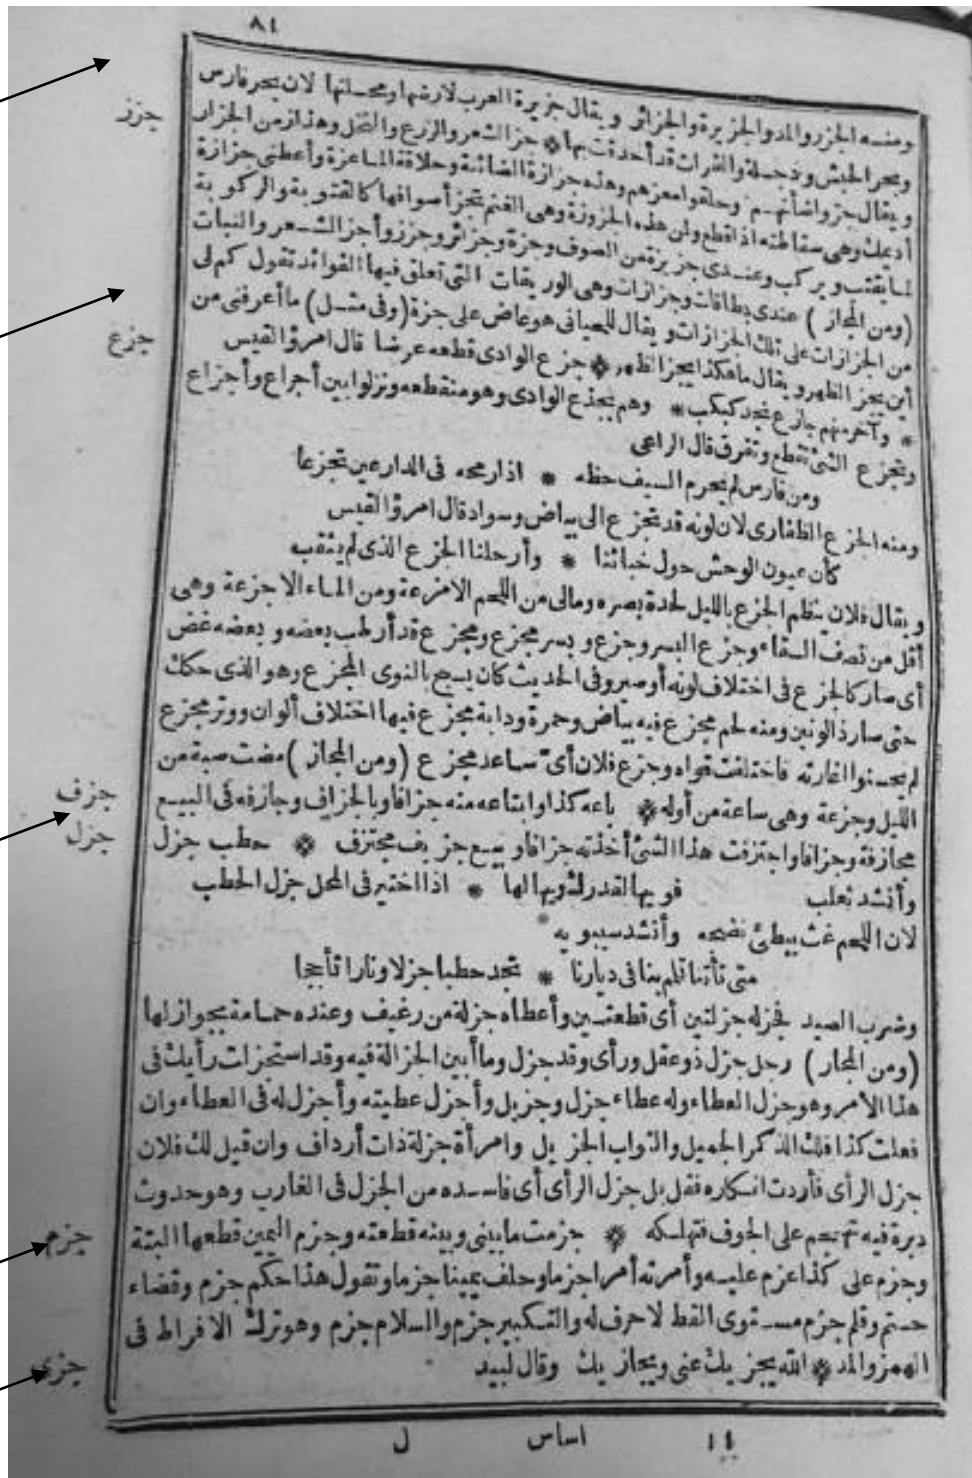 ٨١
ومنسه الجزر والمد والجزيرة والجزائر ويقال جزيرة العرب لارضها ومحلتها لان بحر فارس
جزز
وبحر الحبش ودجلة والفرات قد أحدقت بها * جز الشعر والزرع والنخل وهذا زمن الجزاز
ويقال جزوا ضأنهم وحلقوا معزهم وهذه جزازة الضائنة وحلاقة الماعزة وأعطنى جزازة
أديمك وهى سقاطته اذا قطع ولمن هذه الجزوزة وهى الغنم تجز أصوافها كالقتوبة والركوبة
لما يقتب ويركب وعندى جزيزة من الصوف وجزة وجزائز وجزز وأجز الشعر والنبات
(ومن المجاز) عندى بطاقات وجزازات وهى الوريقات التى تعلق فيها الفوائد تقول كم لى
من الجزازات على تلك الحزازات ويقال للحيانى هو عاض على جزة (وفى مثل) ما أعرفنى من
جزع
أين يجز الظهر ويقال ما هكذا يجز الظهر * جزع الوادى قطعه عرضا قال امرؤ القيس
* وآخر منهم جازع نجد كبكب * وهم بجذع الوادى وهو منقطعه ونزلوا بين أجراع وأجزاع
وتجزع الشئ تقطع وتفرق قال الراعى
ومن فارس لم يحرم السيف حظه * اذا رمحه فى الدارعين تجزعا
ومنه الجزع الظفارى لان لونه قد تجزع الى بياض وسواد قال امرؤ القيس
كأن عيون الوحش حول خبائنا * وأرحلنا الجزع الذى لم يثقب
ويقال فلان ينظم الجزع بالليل لحدة بصره ومالى من اللحم الا مزعة ومن الماء الا جزعة وهى
أقل من نصف السقاء وجزع البسر وجزع وبسر مجزع ومجزع قد أرطب بعضه وبعضه غض
أى صار كالجزع فى اختلاف لونه أوصبر وفى الحديث كان يسبح بالنوى المجزع وهو الذى حكك
حتى صار ذا لونين ومنه لحم مجزع فيه بياض وحمرة ودابة مجزع فيها اختلاف ألوان ووتر مجزع
لم يحسنوا اغارته فاختلفت قواه وجزع فلان أى ساعد مجزع (ومن المجاز) مضت صبة من
جزف
الليل وجزعة وهى ساعة من أوله * باعه كذا وابتاعه منه جزافا وبالجزاف وجازفه فى البيع
جزل
مجازفة وجزافا واجتزفت هذا الشئ أخذته جزافا وبيع جزيف مجتزف * حطب جزل
وأنشد ثعلب فويها لقدرك ويها لها * اذا اختير فى المحل جزل الحطب
لان اللحم غث يبطئ نضجه وأنشد سيبويه
متى تأتنا تلمم بنا فى ديارنا * تجد حطبا جزلا ونارا تأججا
وضرب الصيد فجزله جزلتين أى قطعتين وأعطاه جزلة من رغيف وعنده حمامة بجوازلها
(ومن المجاز) رجل جزل ذو عقل ورأى وقد جزل وما أبين الجزالة فيه وقد استجزلت رأيك فى
هذا الأمر وهو جزل العطاء وله عطاء جزل وجزيل وأجزل عطيته وأجزل له فى العطاء وان
فعلت كذا فلك الذكر الجميل والثواب الجزيل وامرأة جزلة ذات أرداف وان قيل لك فلان
جزل الرأى فأردت انكاره فقل بل جزل الرأى أى فاسده من الجزل فى الغارب وهو حدوث
جزم
دبرة فيه تهجم على الجوف فتهلكه * جزمت ما بينى وبينه قطعته وجزم اليمين قطعها البتة
وجزم على كذا عزم عليه وأمرته أمرا جزما وحلف يمينا جزما وتقول هذا حكم جزم وقضاء
حتم وقلم جزم مستوى القط لا حرف له والتكبير جزم والسلام جزم وهو ترك الافراط فى
جزى
الهمز والمد * الله يجزيك عنى ويجازيك وقال لبيد
١١ اساس ل